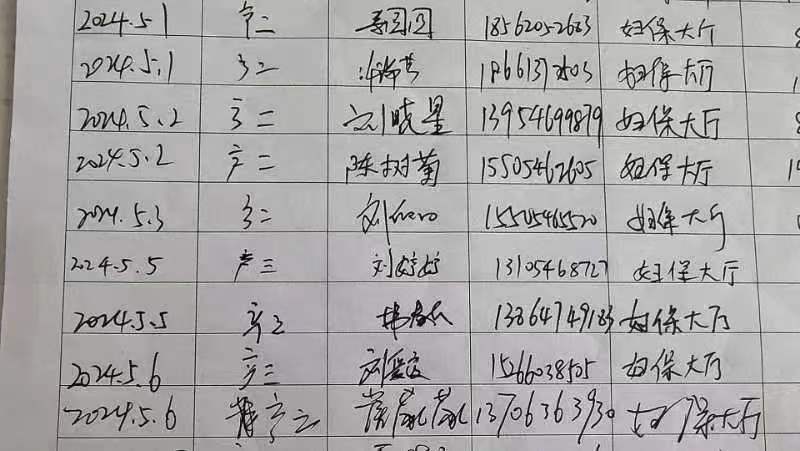 2024.5.1 产二 18562052633 妇保大厅
2024.5.1 产二 妇保大厅
2024.5.2 产二 刘晓星 13954699879 妇保大厅
2024.5.2 产二 陈树菊 15505462605 妇保大厅
2024.5.3 产二 15505465520 妇保大厅
2024.5.5 产三 刘婷婷 13105468727 妇保大厅
2024.5.5 产二 13864749183 妇保大厅
2024.5.6 产三 15266038505 妇保大厅
2024.5.6 产二 13706363930 妇保大厅